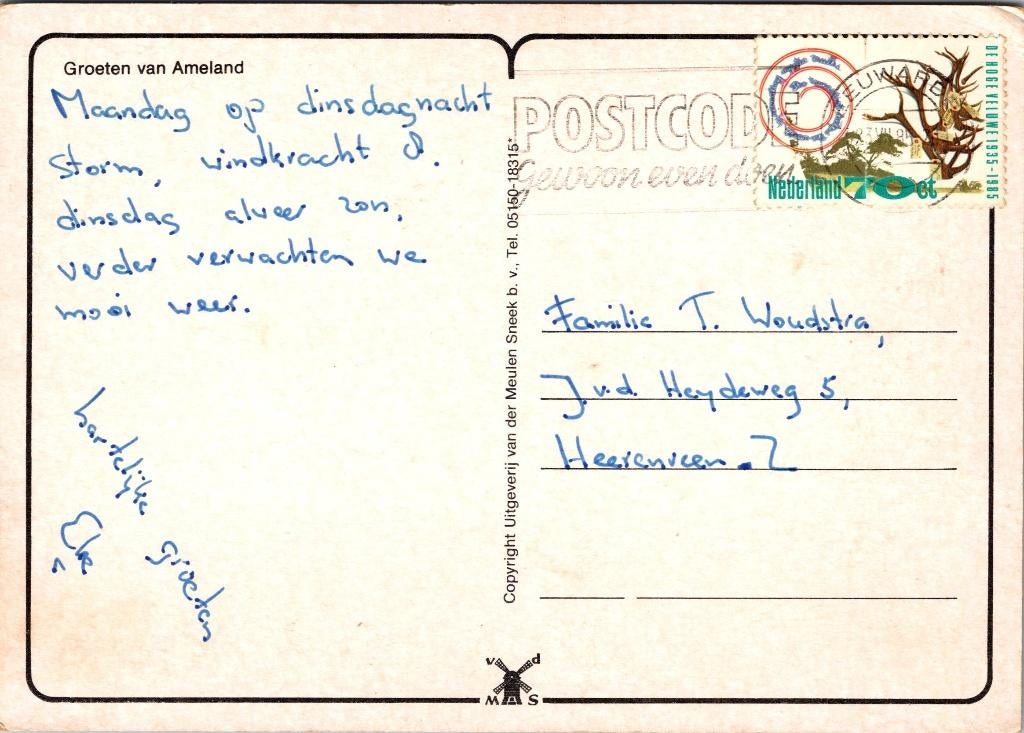 Groeten van Ameland
Maandag op dinsdagnacht
Storm, windkracht 8.
dinsdag alweer zon,
verder verwachten we
mooi weer.
hartelijke
groeten
Copyright Uitgeverij van der Meulen Sneek b. v., Tel. 05150-18315*
POSTCODE
Gewoon even doen
DE HOGE VELUWE 1935-1985
Nederland 70 ct
Familie T. Woudstra,
J.v.d. Heydeweg 5,
Heerenveen. Z
v d
M S